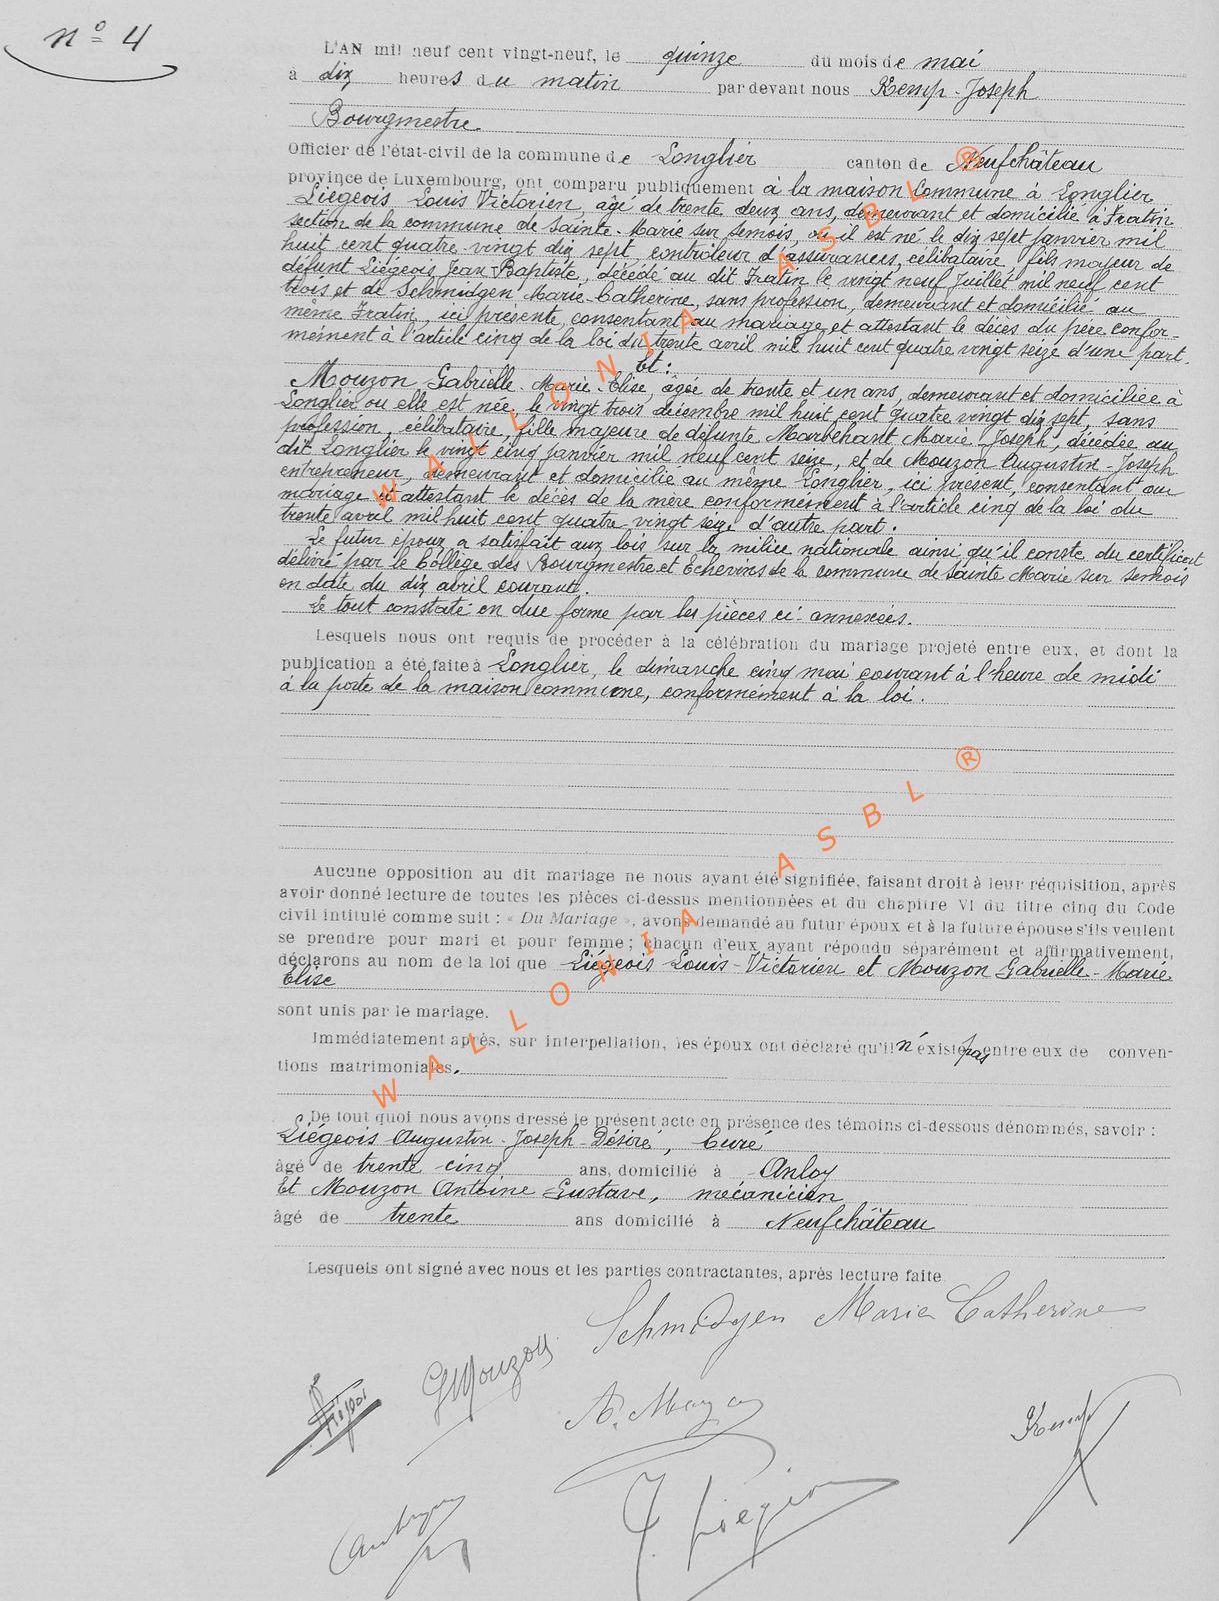 nº 4
L'AN mil neuf cent vingt-neuf, le quinze du mois de mai
à dix heures du matin par devant nous Kemp-Joseph
Bourgmestre
Officier de l'état-civil de la commune de Longlier canton de Neufchâteau
province de Luxembourg, ont comparu publiquement à la maison Commune à Longlier
Liégeois Louis Victorien, âgé de trente deux ans, demeurant et domicilié à Fratin
section de la commune de Sainte-Marie sur Semois, où il est né le dix sept Janvier mil
huit cent quatre-vingt dix sept, contrôleur d'assurances, célibataire, fils majeur de
défunt Liégeois Jean Baptiste, décédé au dit Fratin le vingt neuf Juillet mil neuf cent
trois et de Schmidgen Marie-Catherine, sans profession, demeurant et domicilié au
même Fratin, ici présente, consentant au mariage et attestant le décès du père confor-
mément à l'article cinq de la loi du trente avril mil huit cent quatre vingt seize d'une part.
Et :
Mouzon Gabrielle-Marie-Elise, âgée de trente et un ans, demeurant et domiciliée à
Longlier où elle est née, le vingt trois décembre mil huit cent quatre vingt dix sept, sans
profession, célibataire, fille majeure de défunte Maréchant Marie-Joseph, décédée au
dit Longlier le vingt cinq janvier mil neuf cent seize, et de Mouzon Augustin-Joseph
entrepreneur, demeurant et domicilié au même Longlier, ici présent, consentant au
mariage et attestant le décès de la mère conformément à l'article cinq de la loi du
trente avril mil huit cent quatre-vingt seize d'autre part.
Le futur époux a satisfait aux lois sur la milice nationale ainsi qu'il conste du certificat
délivré par le Collège des Bourgmestre et Echevins de la commune de Sainte Marie sur Semois
en date du dix avril courant.
Le tout constaté en due forme par les pièces ci-annexées.
Lesquels nous ont requis de procéder à la célébration du mariage projeté entre eux, et dont la
publication a été faite à Longlier, le dimanche cinq mai courant à l'heure de midi
à la porte de la maison commune, conformément à la loi.
Aucune opposition au dit mariage ne nous ayant été signifiée, faisant droit à leur réquisition, après
avoir donné lecture de toutes les pièces ci-dessus mentionnées et du chapitre VI du titre cinq du Code
civil intitulé comme suit : « Du Mariage », avons demandé au futur époux et à la future épouse s'ils veulent
se prendre pour mari et pour femme ; chacun d'eux ayant répondu séparément et affirmativement,
déclarons au nom de la loi que Liégeois Louis-Victorien et Mouzon Gabrielle-Marie
Elise
sont unis par le mariage.
Immédiatement après, sur interpellation, les époux ont déclaré qu'il n'existe pas entre eux de conven-
tions matrimoniales.
De tout quoi nous avons dressé le présent acte en présence des témoins ci-dessous dénommés, savoir :
Liégeois Augustin-Joseph-Désiré, Curé
âgé de trente-cinq ans, domicilié à Anloy
Et Mouzon Antoine-Gustave, mécanicien
âgé de trente ans domicilié à Neufchâteau
Lesquels ont signé avec nous et les parties contractantes, après lecture faite
Schmidgen Marie Catherine
GMouzon
Liégeois
A. Mouzon
Kemp
Liégeois
WALLONIA ASBL ®
WALLONIA ASBL ®